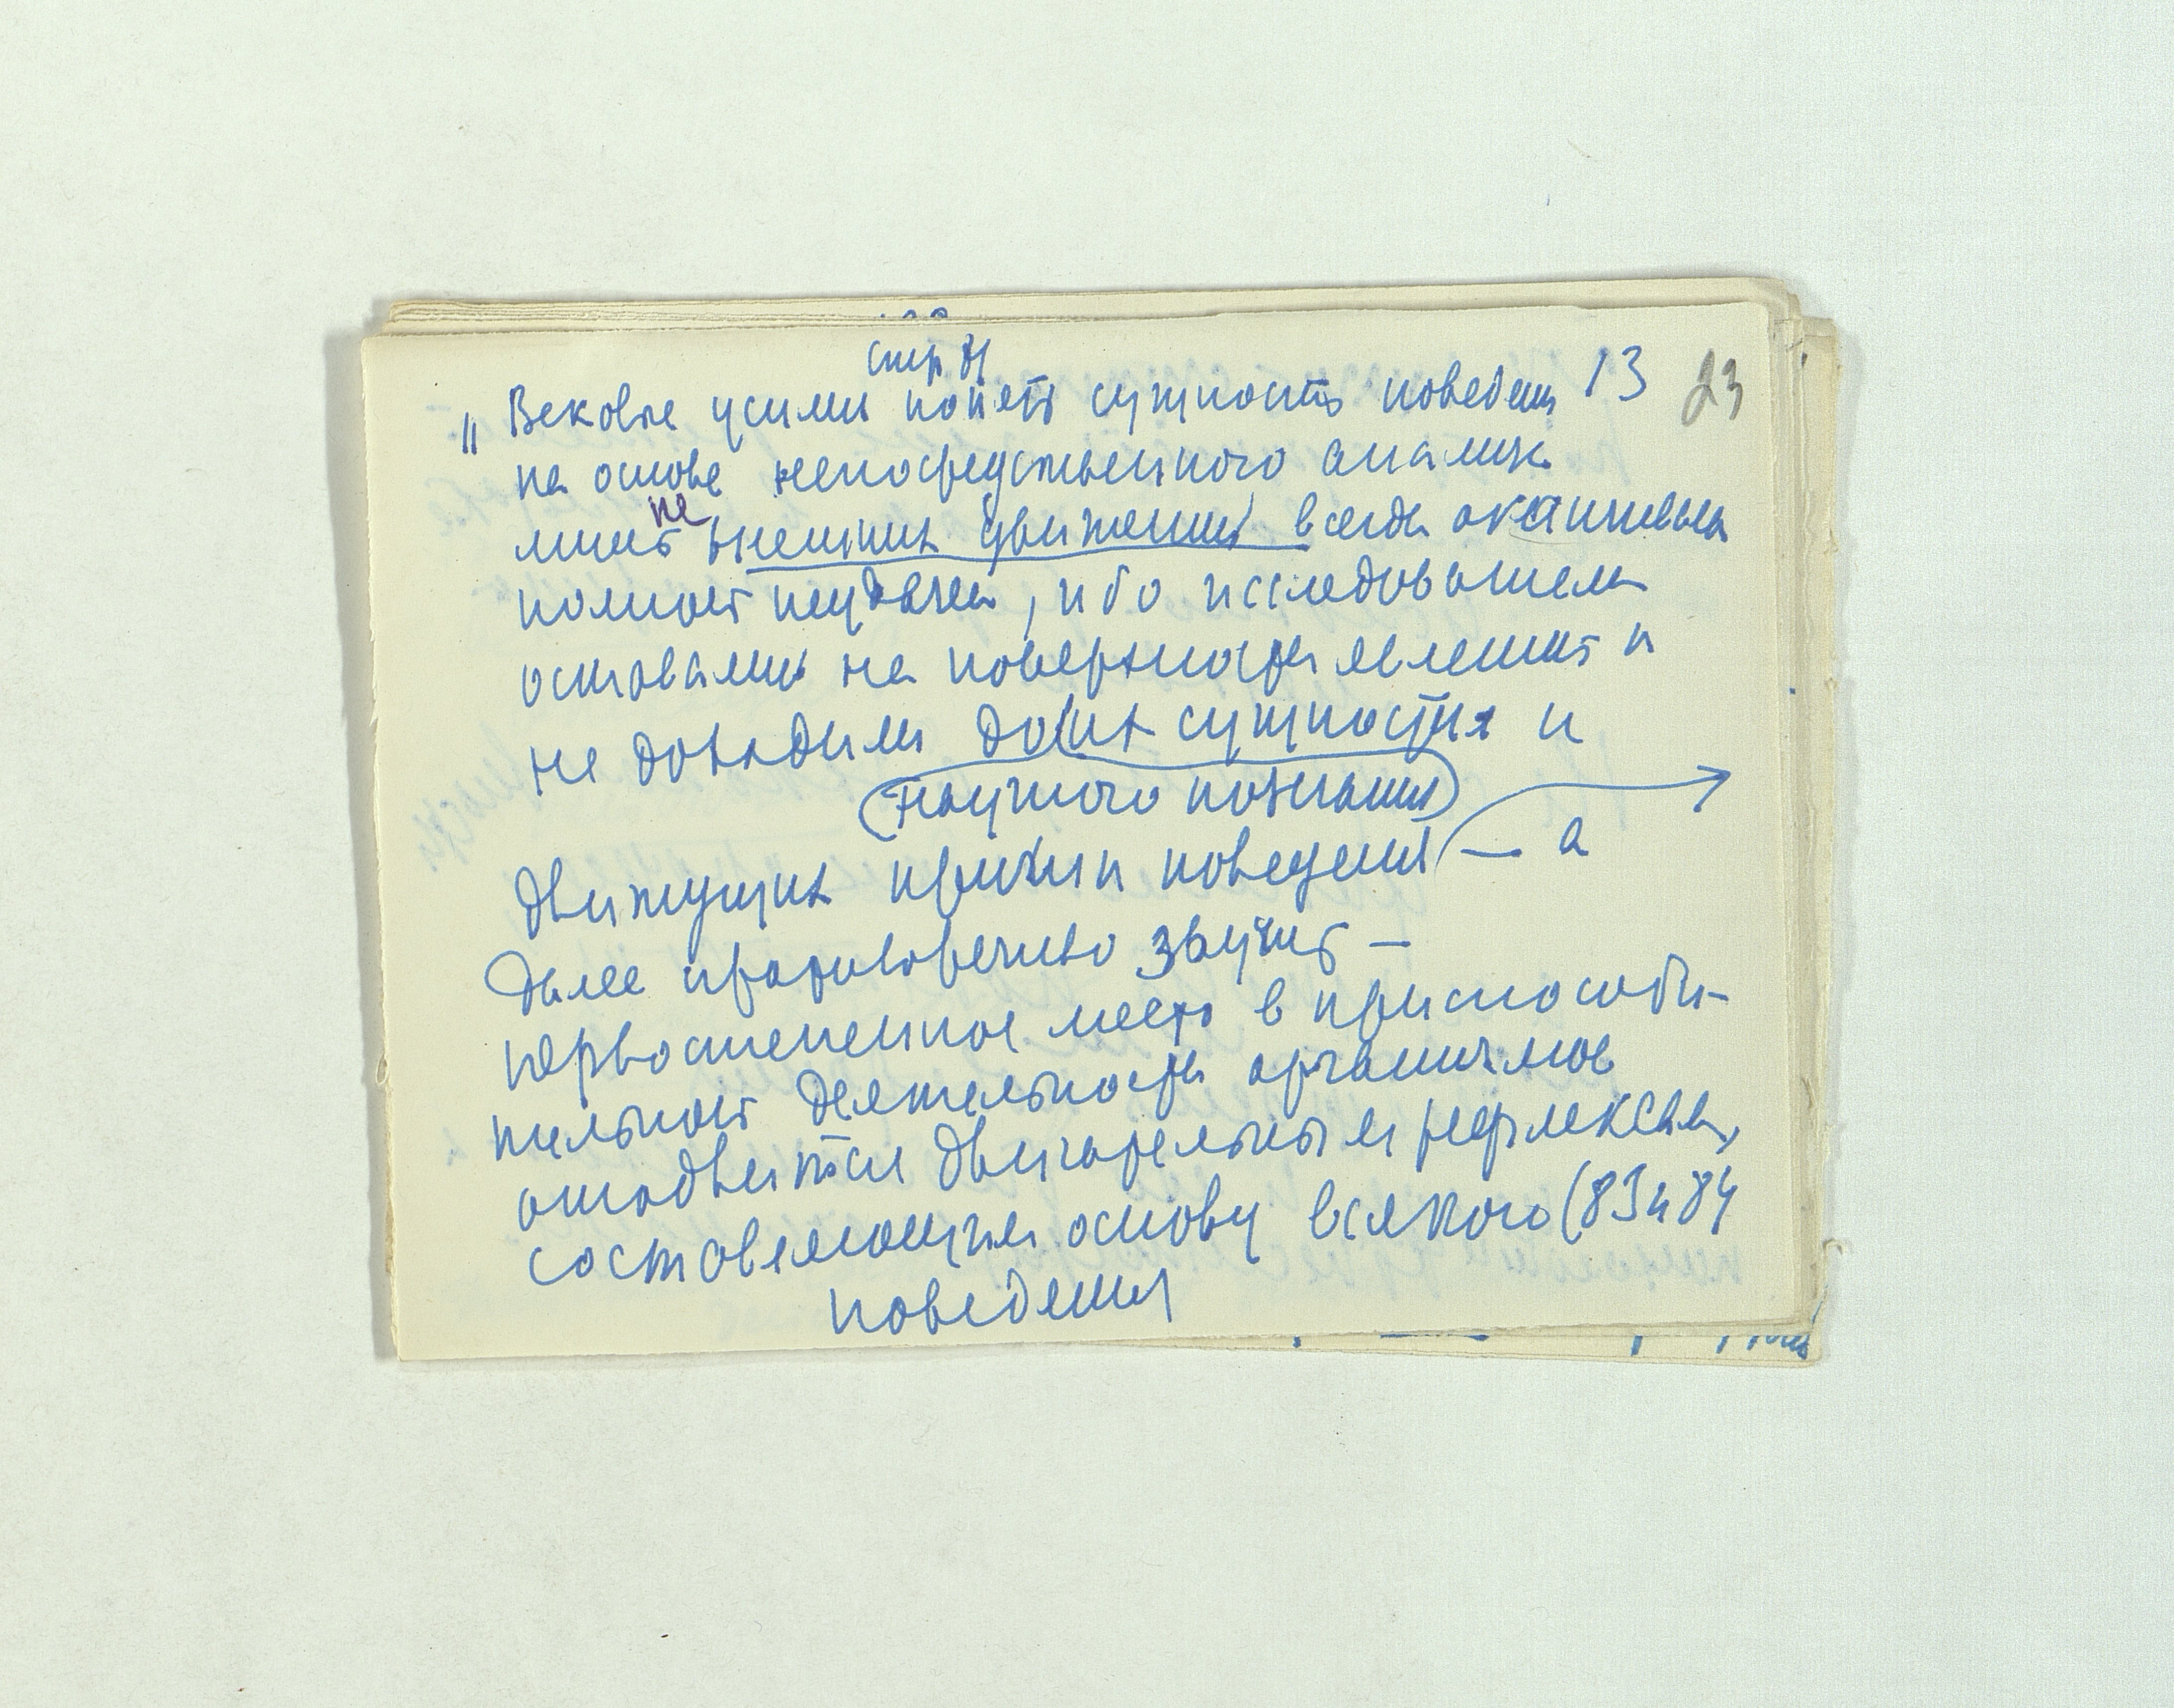 стр
13 23
„ Вековые усилия понять сущность поведения
на основе непосредственного анализа
не
лишь внешних движений всегда оканчивались
полной неудачей, ибо исследователи
оставались на поверхности явлений и
не доходили до их сущности и
(научного познания)
движущих причин поведения — а
далее противоречиво звучит —
первостепенное место в приспособи-
тельной деятельности организмов
отводится двигательным рефлексам,
составляющим основу всякого (83 и 84
поведения